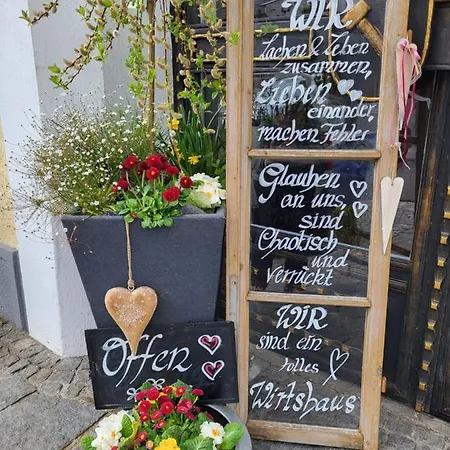 WIR
Lachen & Leben
zusammen,
Lieben
einander,
machen Fehler
Glauben
an uns,
sind
Chaotisch
und
verrückt
WIR
sind ein
tolles
Wirtshaus
Offen